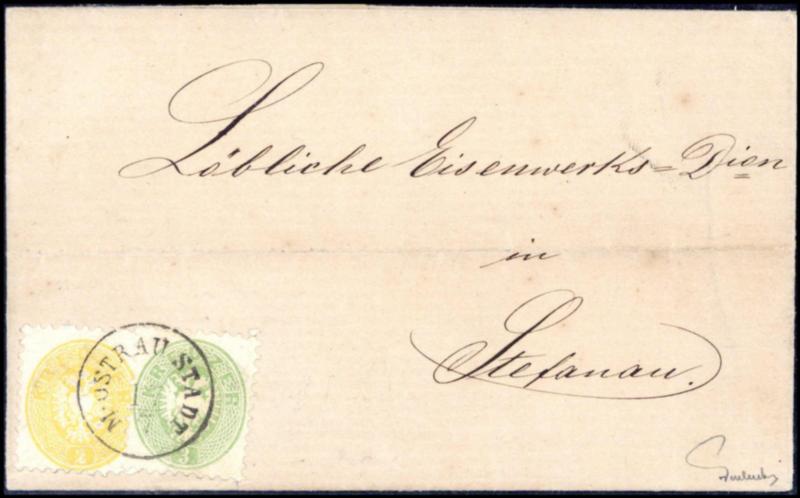 Löbliche Eisenwerks=Dion
in
Stefanau.
M. OSTRAU STADT
KREUZER
2
KREUZER
3